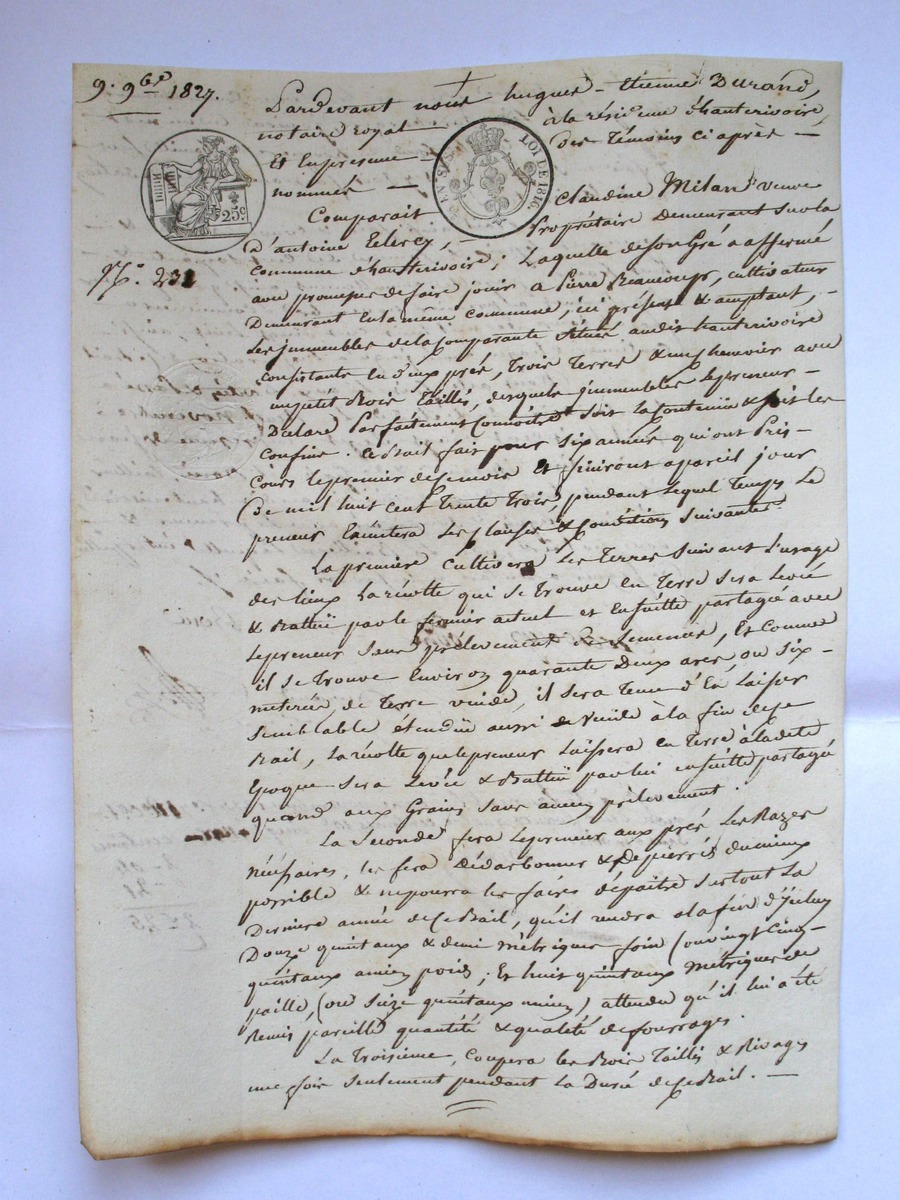 9. 9bre 1827.
Pardevant nous hugues-Etienne Durand,
notaire royal à la résidence d'hauterivoire,
Et En presence des Témoins Ci après —
nommés —
25c
LOI DE 1816.
N.° 231
Comparait Claudine Milan veuve
D'antoine —, Propriétaire Demeurant Sur la
Commune d'hauterivoire; Laquelle de Son Gré a affermé
avec promesse de faire jouir a Pierre Beaucoup, cultivateur
Demeurant En la même Commune, ici présent & acceptant, —
les jmmeubles de la Comparante Situés audit hauterivoire
Consistants En deux prés, Trois Terres & un chenevier avec
un petit Bois Taillis, desquels jmmeubles le preneur —
Déclare Parfaitement Connoitre Soit la Contenüe & soit les
Confins. Ce Bail fait pour Six années qui ont Pris —
Cours le premier de Ce mois Et finiront a pareil jour
De mil huit cent trente Trois, pendant lequel Temps Le
preneur Exécutera les Clauses & Conditions Suivantes.
La premiere Cultivera les Terres Suivant L'usage
des lieux La récolte qui Se Trouve En Terre Sera Levée
& Battüe par le fermier actuel et Ensuitte partagée avec
le preneur Sans prélevement de Semences, Et Comme
il Se Trouve Environ quarante Deux ares, ou Six —
meterées de Terre vuide, il Sera Tenu d'En Laisser
Semblable étendüe aussi Vuide à la fin de Ce
Bail, La récolte que le preneur Laissera En Terre à ladite
Epoque Sera Levée & Battüe par lui ensuitte partagée
quand aux Grains Sans aucun prélevement.
La Seconde fera le preneur aux prés Les Razes
nécessaires, les fera Dédarbonner & Depierrés du mieux
possible & ne pourra les faire dépaitre Surtout La
Derniere année de Ce Bail, qu'il rendra a la fin d'Icelui
Douze quintaux & demi métriques foin (ou vingt Cinq —
quintaux ancien poids; Et huit quintaux Métriques de
paille, (ou Seize quintaux ancien) attendu qu'il lui a été
Remis pareille quantité & qualité de fourrages.
La Troisieme, Coupera les Bois Taillis & Rivages
une fois Seulement pendant La Durée de Ce Bail. —